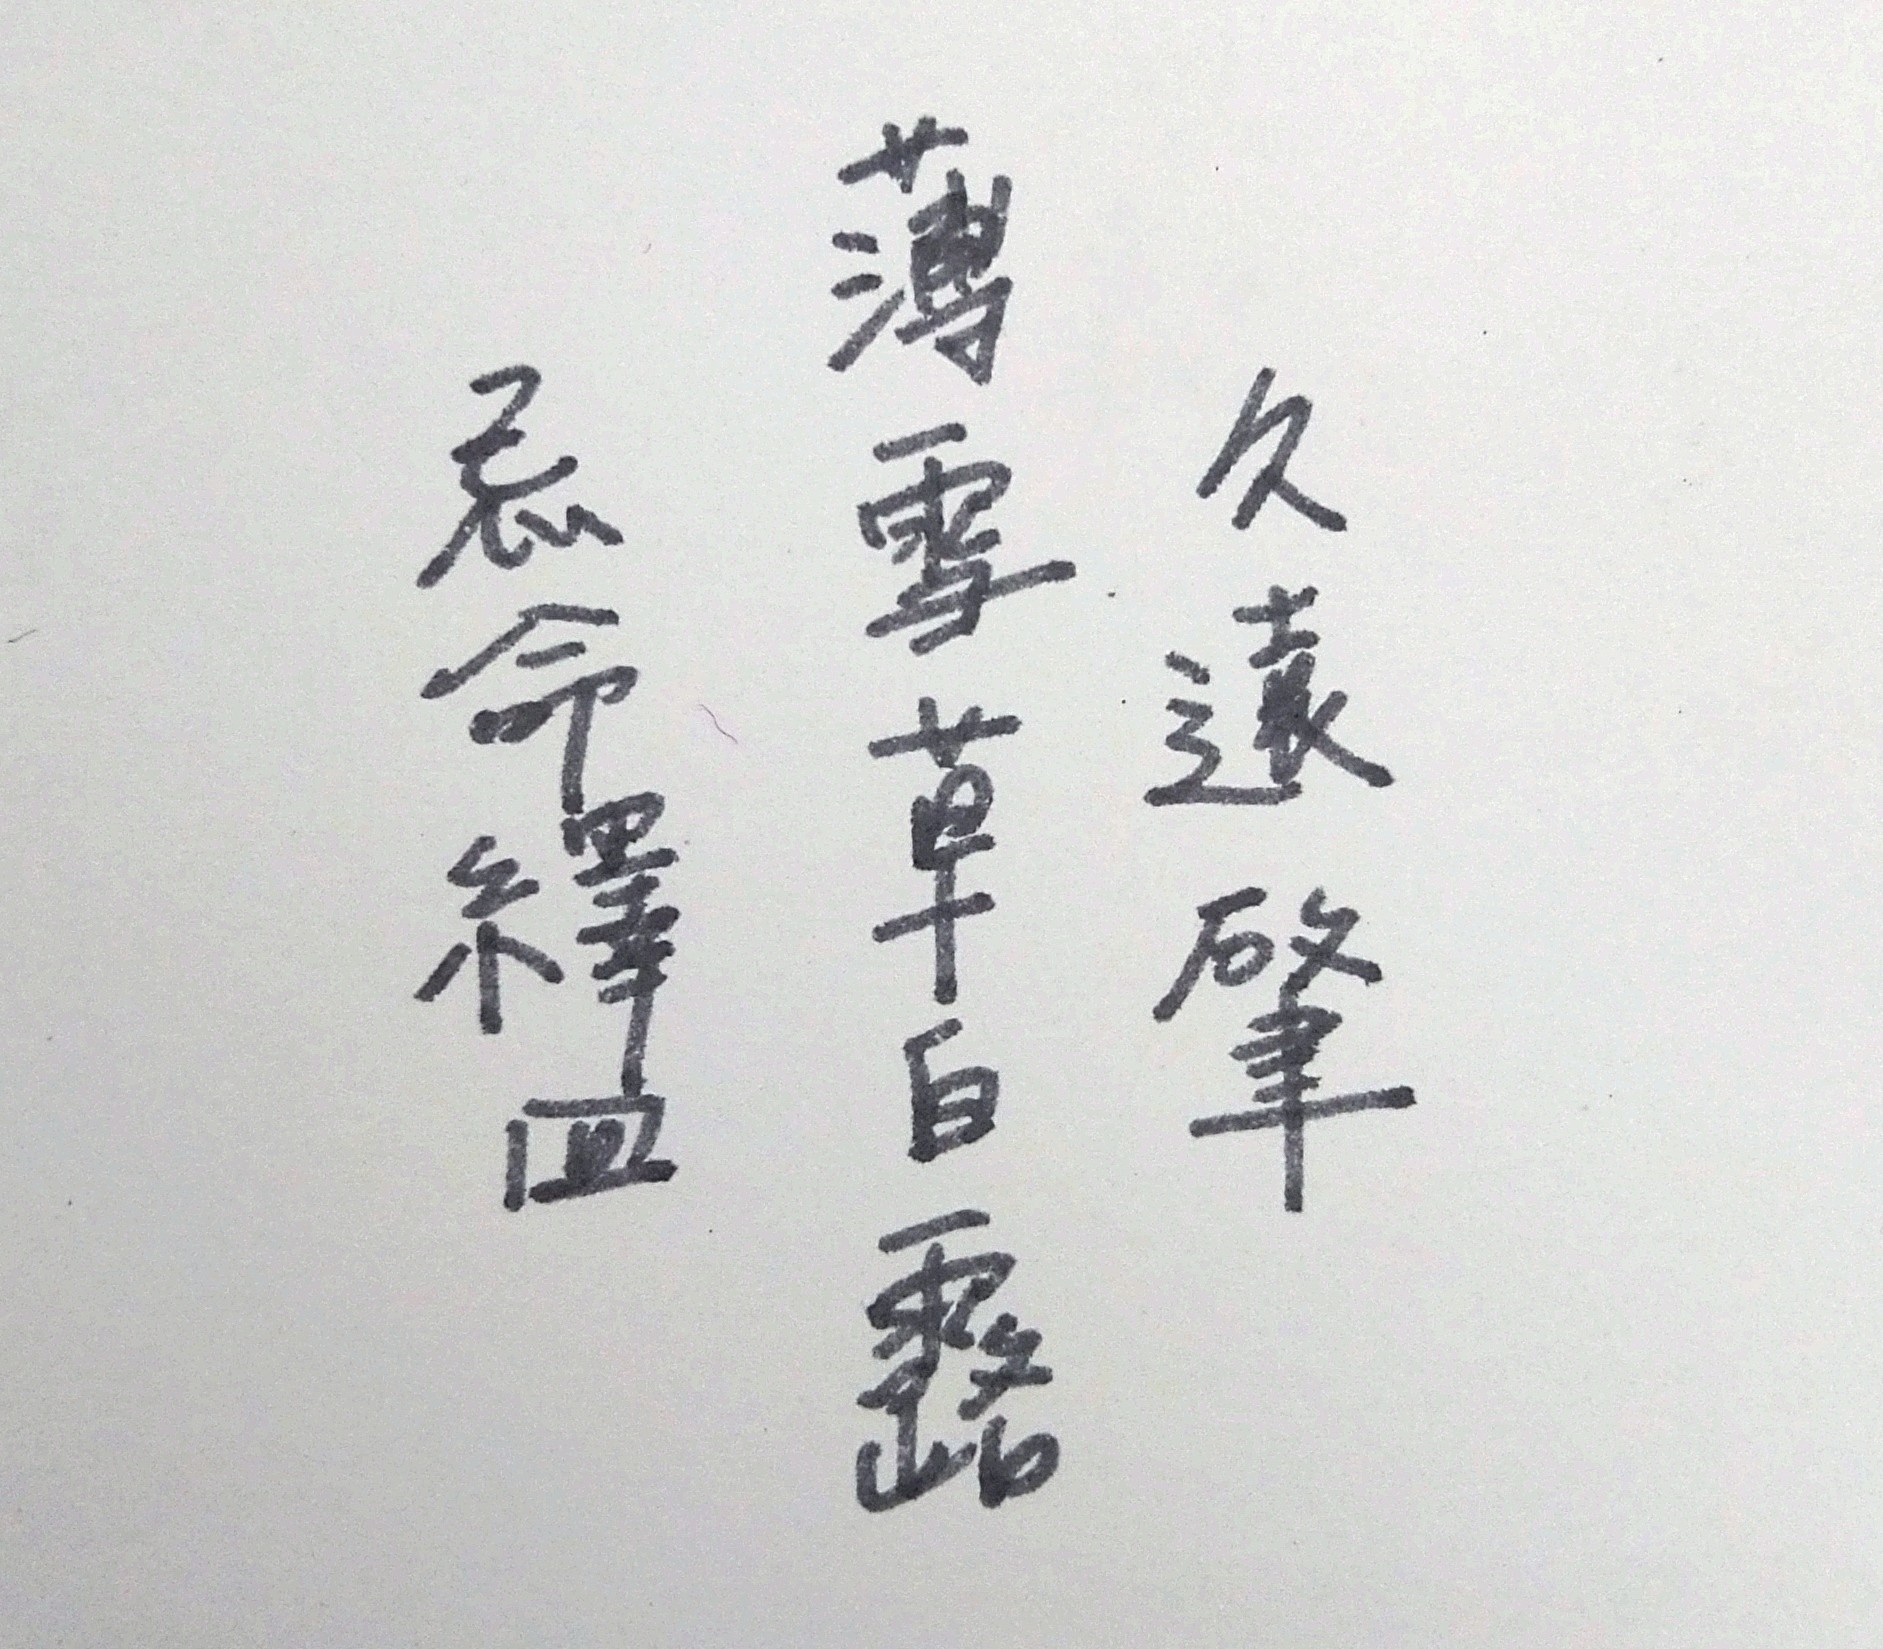 久遠肇
薄雪草白露
命繹皿